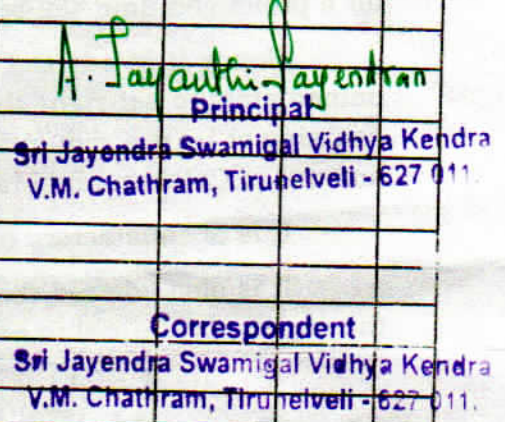 A. Jayanthi Jayendran
Principal
Sri Jayendra Swamigal Vidhya Kendra
V.M. Chathram, Tirunelveli - 627 011.
Correspondent
Sri Jayendra Swamigal Vidhya Kendra
V.M. Chathram, Tirunelveli - 627 011.